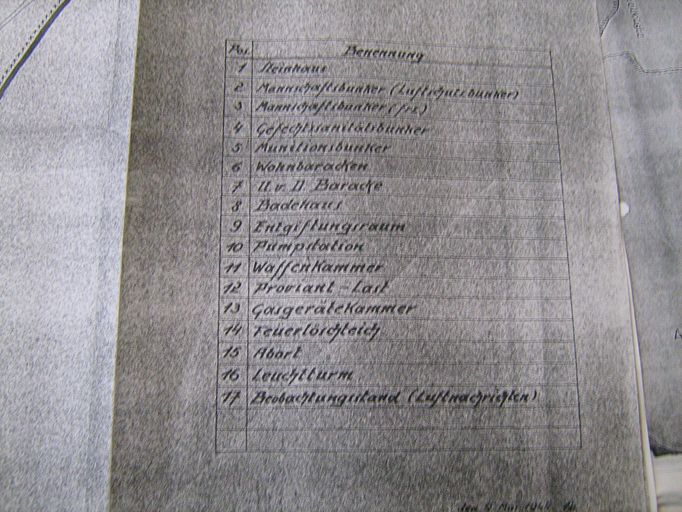 Pos. Benennung
1 Steinhaus
2 Mannschaftsbunker (Luftschutzbunker)
3 Mannschaftsbunker (frz)
4 Gefechtssanitätsbunker
5 Munitionsbunker
6 Wohnbaracken
7 U.v.D. Baracke
8 Badehaus
9 Entgiftungsraum
10 Pumpstation
11 Waffenkammer
12 Proviant-Last
13 Gasgerätekammer
14 Feuerlöschteich
15 Abort
16 Leuchtturm
17 Beobachtungsstand (Luftnachrichten)
den